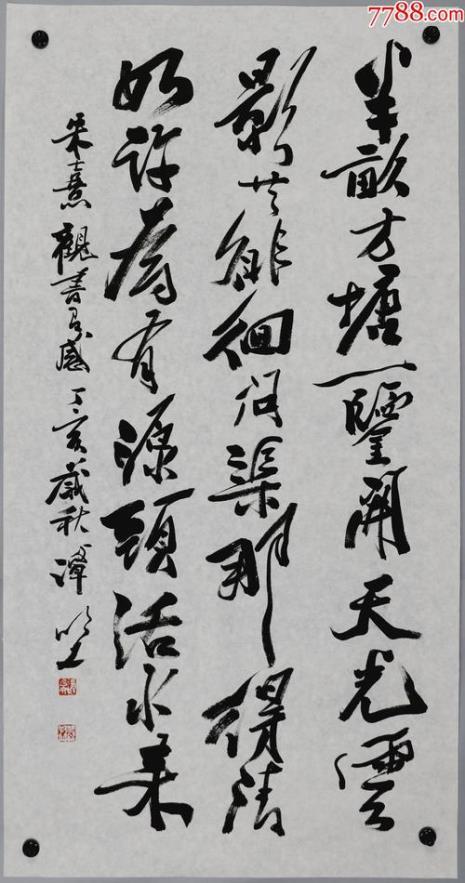 7788.com
半畝方塘一鑒開天光雲
影共徘徊問渠那得清
如許為有源頭活水来
朱熹觀書有感丁亥歲秋